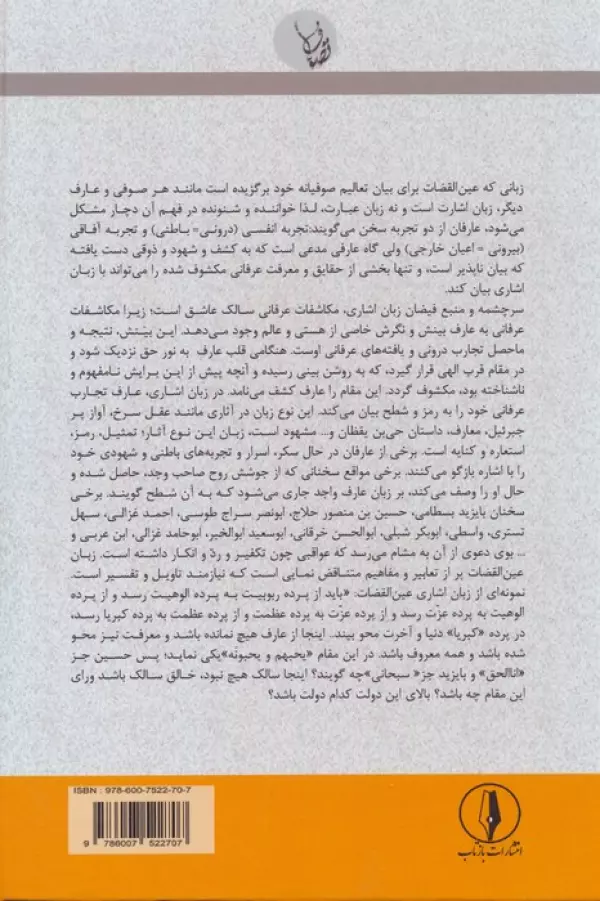 زبانی که عین‌القضات برای بیان تعالیم صوفیانه خود برگزیده است مانند هر صوفی و عارف
دیگر، زبان اشارت است و نه زبان عبارت، لذا خواننده و شنونده در فهم آن دچار مشکل
می‌شود، عارفان از دو تجربه سخن می‌گویند:تجربه انفسی (درونی= باطنی) و تجربه آفاقی
(بیرونی = اعیان خارجی) ولی گاه عارفی مدعی است که به کشف و شهود و ذوقی دست یافته
که بیان ناپذیر است، و تنها بخشی از حقایق و معرفت عرفانی مکشوف شده را می‌تواند با زبان
اشاری بیان کند.
سرچشمه و منبع فیضان زبان اشاری، مکاشفات عرفانی سالک عاشق است؛ زیرا مکاشفات
عرفانی به عارف بینش و نگرش خاصی از هستی و عالم وجود می‌دهد. این بینش، نتیجه و
ماحصل تجارب درونی و یافته‌های عرفانی اوست. هنگامی قلب عارف به نور حق نزدیک شود و
در مقام قرب الهی قرار گیرد، که به روشن بینی رسیده و آنچه پیش از این برایش نامفهوم و
ناشناخته بود، مکشوف گردد. این مقام را عارف کشف می‌نامد. در زبان اشاری، عارف تجارب
عرفانی خود را به رمز و شطح بیان می‌کند. این نوع زبان در آثاری مانند عقل سرخ، آواز پر
جبرئیل، معارف، داستان حی‌بن یقظان و... مشهود است، زبان این نوع آثار؛ تمثیل، رمز،
استعاره و کنایه است. برخی از عارفان در حال سکر، اسرار و تجربه‌های باطنی و شهودی خود
را با اشاره بازگو می‌کنند. برخی مواقع سخنانی که از جوشش روح صاحب وجد، حاصل شده و
حال او را وصف می‌کند، بر زبان عارف واجد جاری می‌شود که به آن شطح گویند. برخی
سخنان بایزید بسطامی، حسین بن منصور حلاج، ابونصر سراج طوسی، احمد غزالی، سهل
تستری، واسطی، ابوبکر شبلی، ابوالحسن خرقانی، ابوسعید ابوالخیر، ابوحامد غزالی، ابن عربی و
... بوی دعوی از آن به مشام می‌رسد که عواقبی چون تکفیر و ردّ و انکار داشته است. زبان
عین‌القضات پر از تعابیر و مفاهیم متناقض نمایی است که نیازمند تاویل و تفسیر است.
نمونه‌ای از زبان اشاری عین‌القضات: «باید از پرده ربوبیت به پرده الوهیت رسد و از پرده
الوهیت به پرده عزّت رسد و از پرده عزّت به پرده عظمت و از پرده عظمت به پرده کبریا رسد،
در پرده «کبریا» دنیا و آخرت محو بیند.. اینجا از عارف هیچ نمانده باشد و معرفت نیز محو
شده باشد و همه معروف باشد. در این مقام «یحبهم و یحبونه»یکی نماید؛ پس حسین جز
«اناالحق» و بایزید جز« سبحانی»چه گویند؟ اینجا سالک هیچ نبود، خالق سالک باشد ورای
این مقام چه باشد؟ بالای این دولت کدام دولت باشد؟
ISBN : 978-600-7522-70-7
9 786007 522707
انتشارات بازتاب